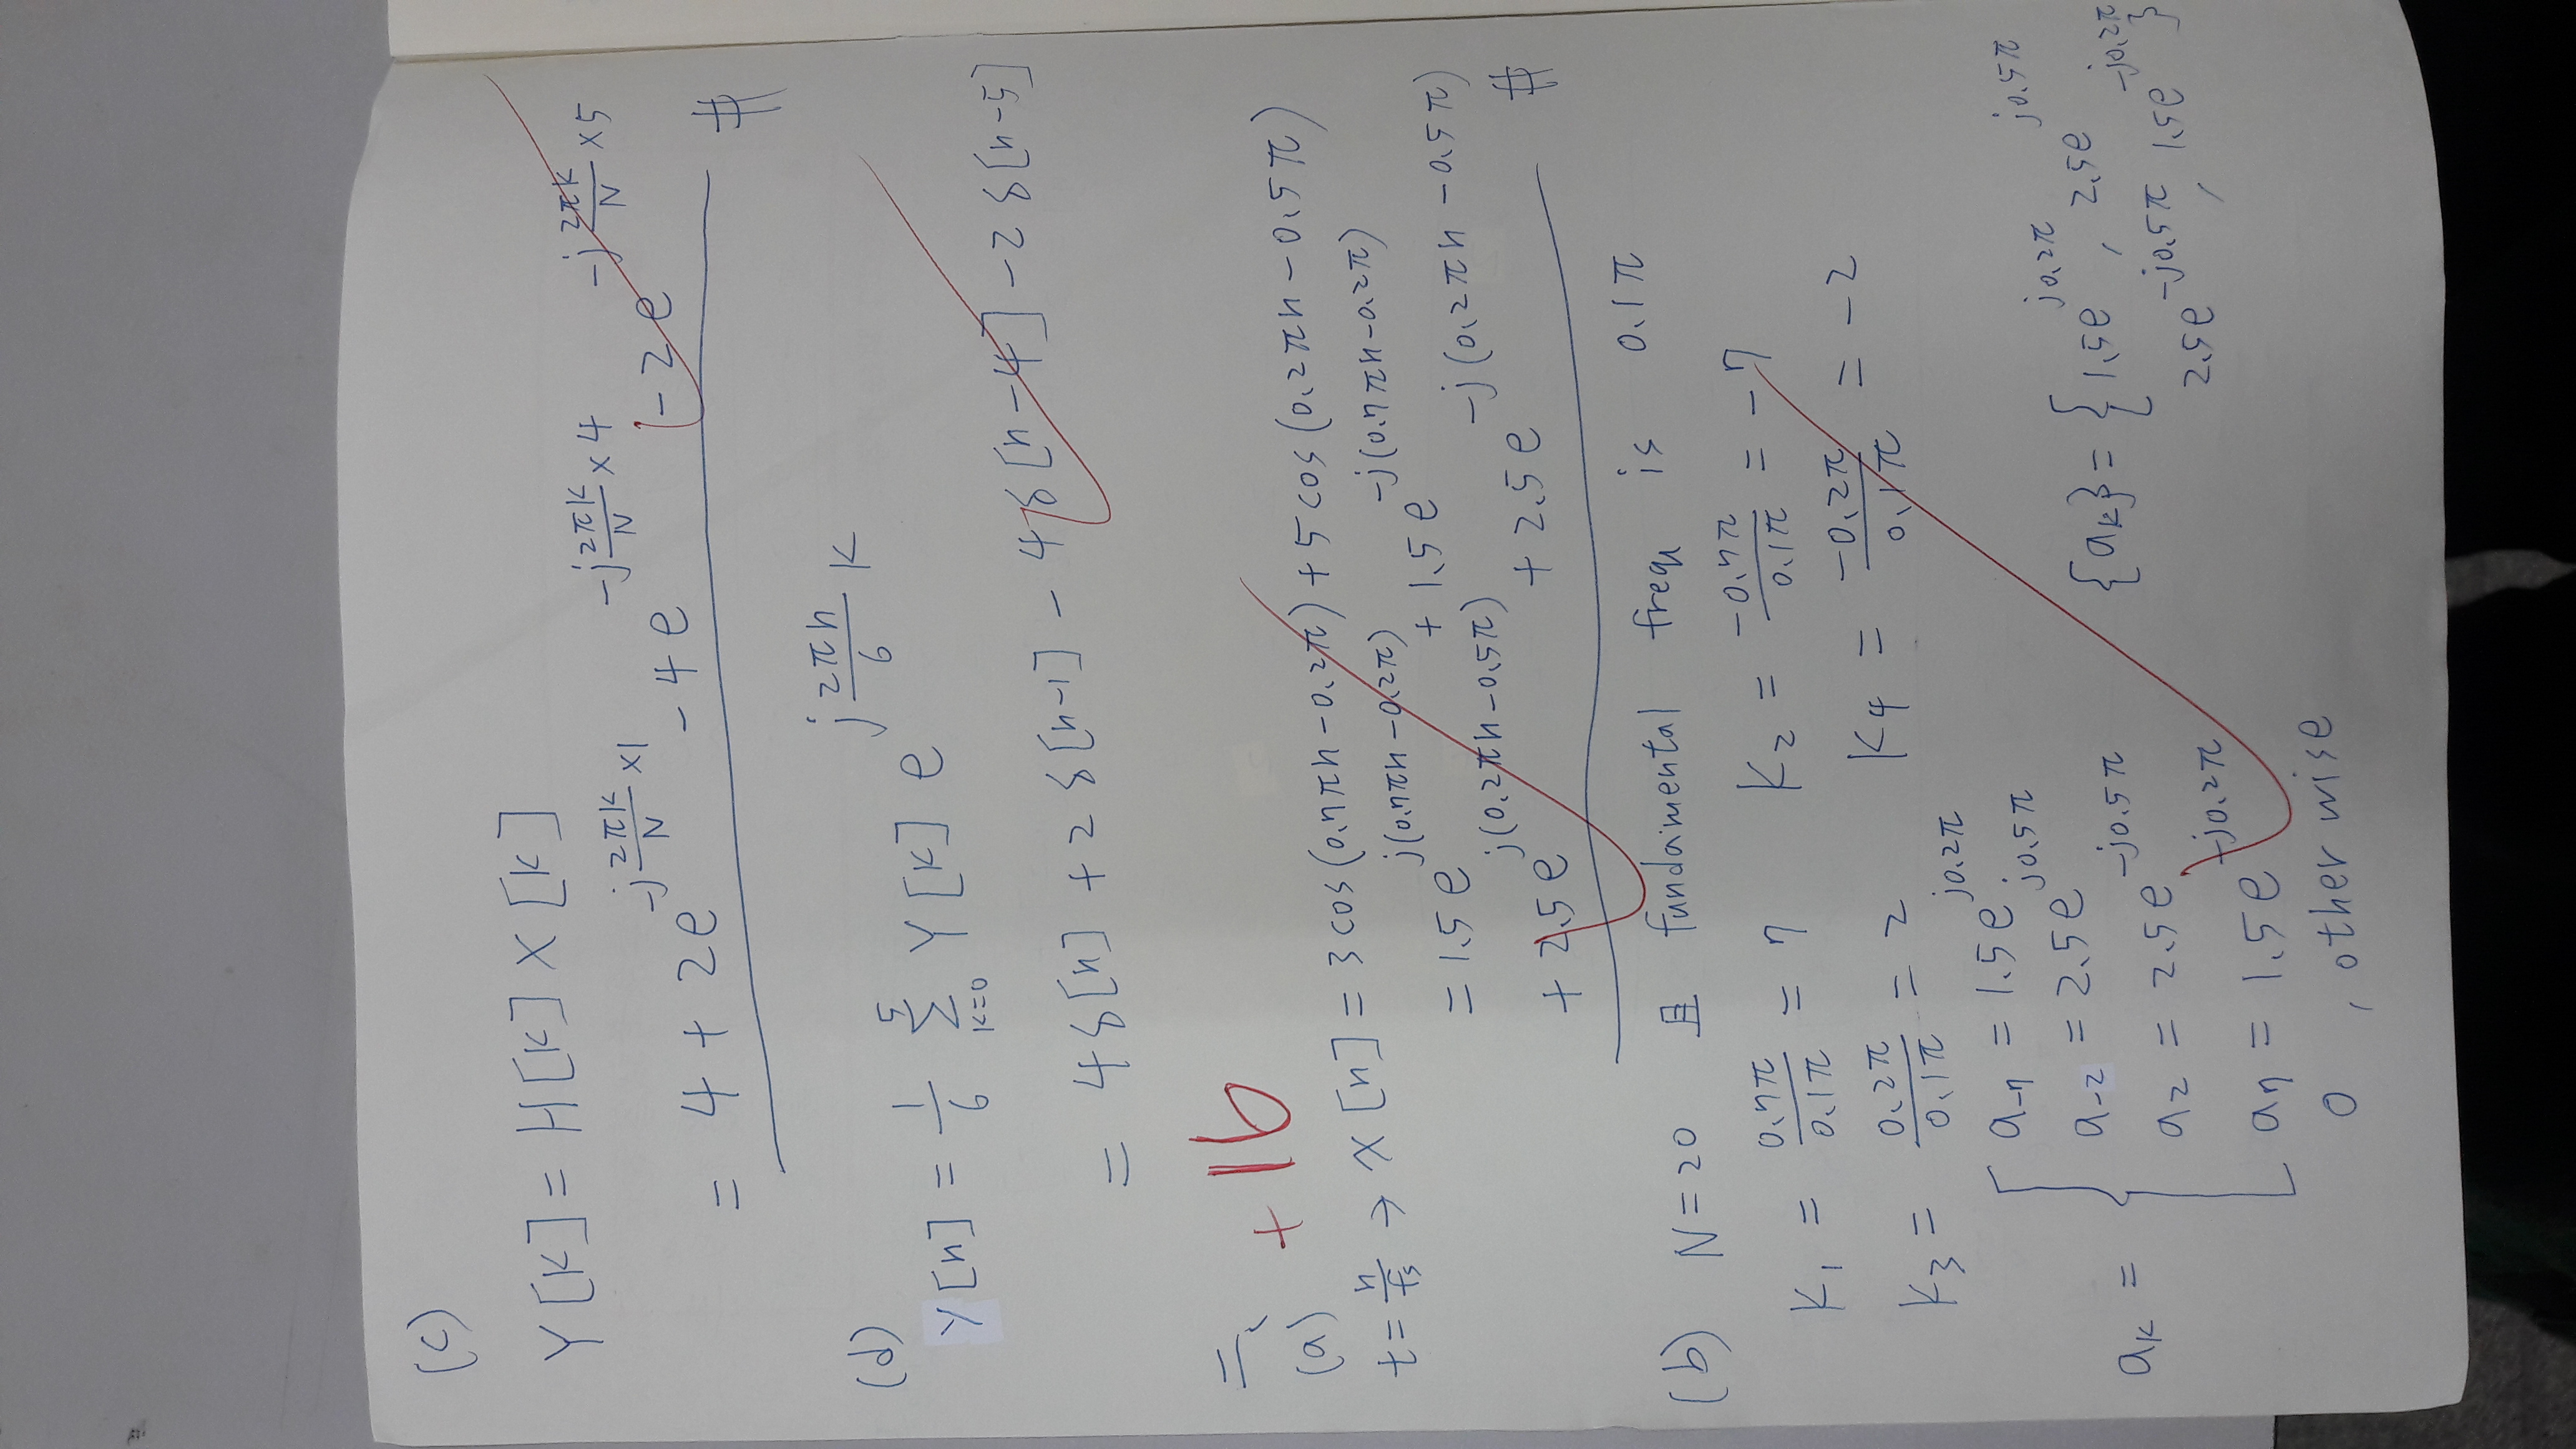 (c)
Y[k] = H[k] X[k]
= 4 + 2e^{-j\frac{2πk}{N}×1} - 4e^{-j\frac{2πk}{N}×4} - 2e^{-j\frac{2πk}{N}×5} #
(d)
y[n] = \frac{1}{6} \sum_{k=0}^{5} Y[k] e^{j\frac{2πn}{6}k}
= 4δ[n] + 2δ[n-1] - 4δ[n-4] - 2δ[n-5]
二、 +16
(a)
t = \frac{n}{fs} → x[n] = 3cos(0.7πn - 0.2π) + 5cos(0.2πn - 0.5π)
= 1.5e^{j(0.7πn-0.2π)} + 1.5e^{-j(0.7πn-0.2π)}
+ 2.5e^{j(0.2πn-0.5π)} + 2.5e^{-j(0.2πn-0.5π)} #
(b) N=20 且 fundamental freq is 0.1π
K_1 = \frac{0.7π}{0.1π} = 7 K_2 = \frac{-0.7π}{0.1π} = -7
K_3 = \frac{0.2π}{0.1π} = 2 K_4 = \frac{-0.2π}{0.1π} = -2
a_k = { a_{-7} = 1.5e^{j0.2π}
a_{-2} = 2.5e^{j0.5π}
a_2 = 2.5e^{-j0.5π}
a_7 = 1.5e^{-j0.2π}
0 , otherwise
{a_k} = { 1.5e^{j0.2π} , 2.5e^{j0.5π}
2.5e^{-j0.5π} , 1.5e^{-j0.2π} }